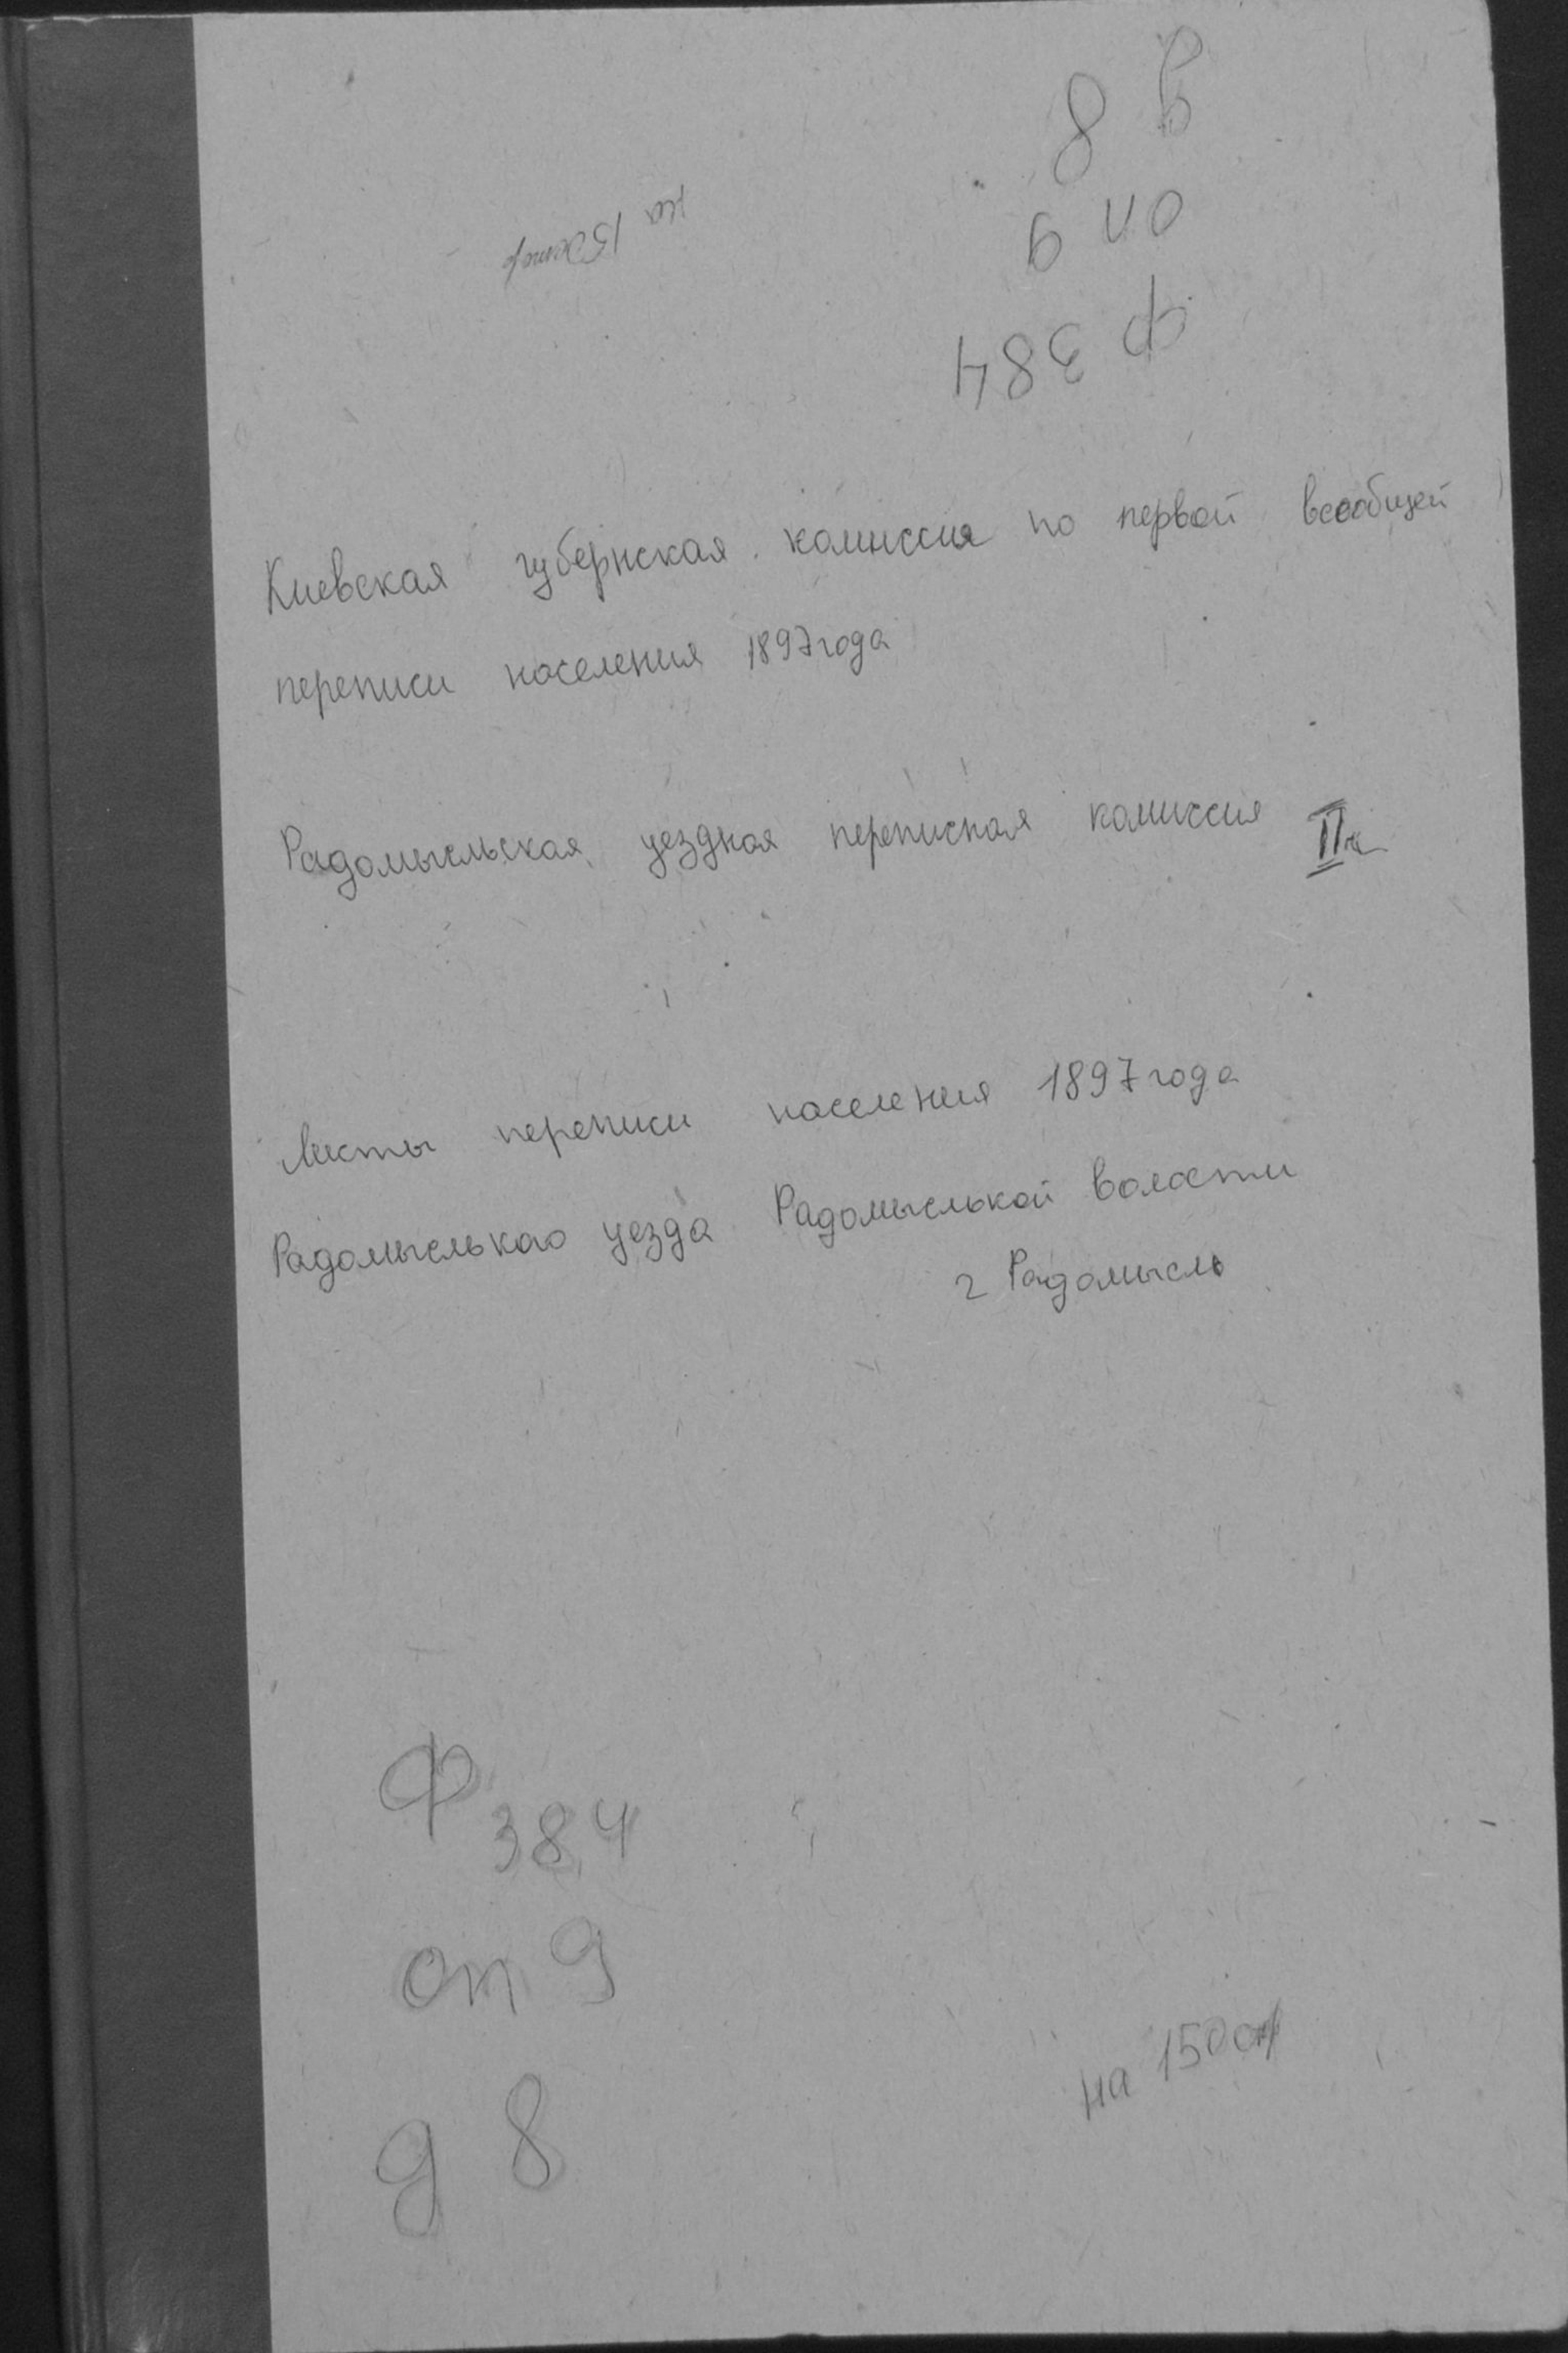 д 8
оп 9
ф 384
на 150 стр
Киевская губернская комиссия по первой всеобщей
переписи населения 1897 года
Радомысльская уездная переписная комиссия II
Листы переписи населения 1897 года
Радомыслького уезда Радомыслькой волости
г Радомысль
Ф 384
оп 9
д 8
на 150 стр